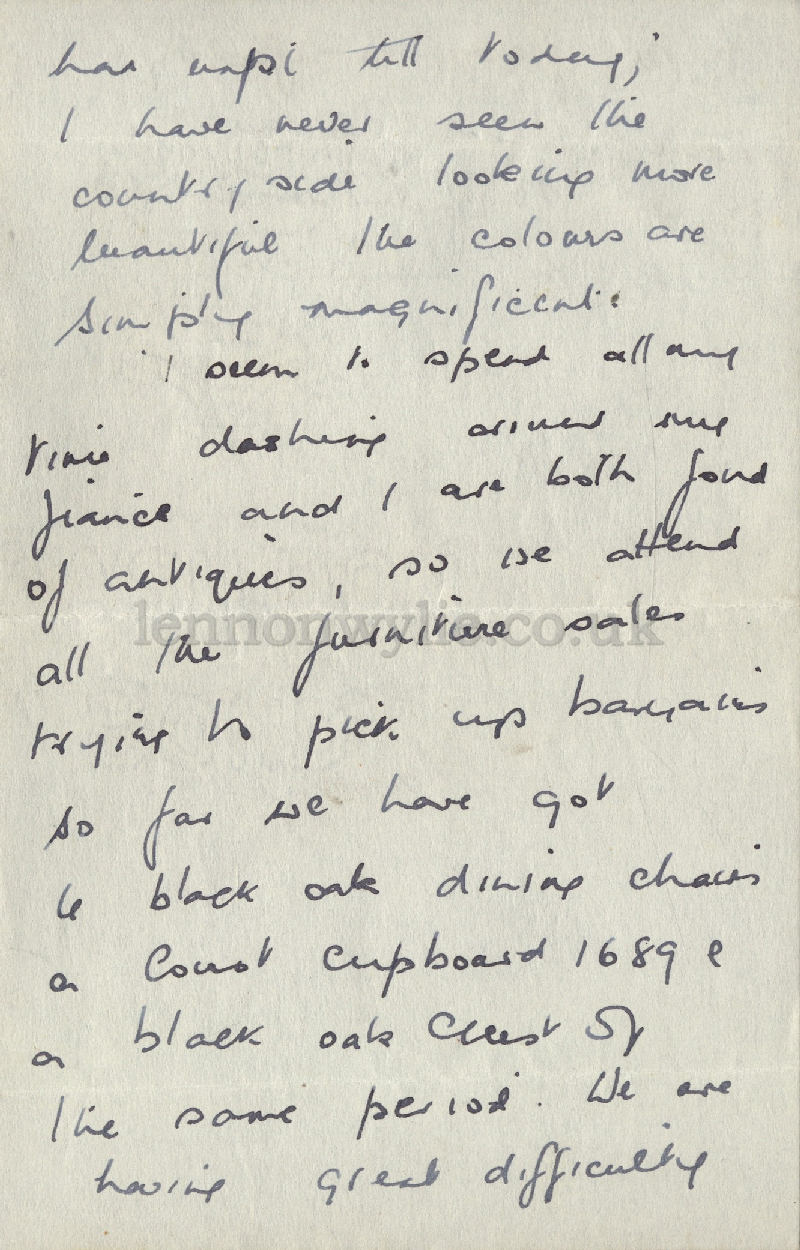 has till today;
I have never seen the
country side looking more
beautiful the colours are
simply magnificent.
I seem to spend all my
time dashing around my
fiance and I are both fond
of antiques, so we attend
all the furniture sales
lennonwylie.co.uk
trying to pick up bargains
so far we have got
6 black oak dining chairs
a Court Cupboard 1689 &
a black oak Chest of
the same period. We are
having great difficulty